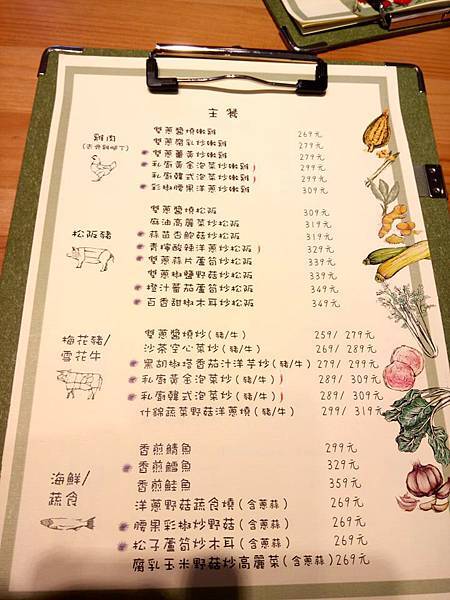 主餐
雞肉
(去骨雞腿丁)
雙蔥醬燒嫩雞 269元
雙蔥腐乳炒嫩雞 279元
雙蔥薑黃炒嫩雞 279元
私廚黃金泡菜炒嫩雞 299元
私廚韓式泡菜炒嫩雞 299元
彩椒腰果洋蔥炒嫩雞 309元
松阪豬
雙蔥醬燒松阪 309元
麻油高麗菜炒松阪 319元
蒜苗杏鮑菇炒松阪 319元
青檸酸辣洋蔥炒松阪 329元
雙蔥蒜片蘆筍炒松阪 339元
雙蔥椒鹽野菇炒松阪 339元
橙汁蕃茄蘆筍炒松阪 349元
百香甜椒木耳炒松阪 349元
梅花豬/
雪花牛
雙蔥醬燒炒(豬/牛) 259/ 279元
沙茶空心菜炒(豬/牛) 269/ 289元
黑胡椒塔香茄汁洋芋炒(豬/牛) 279/ 299元
私廚黃金泡菜炒(豬/牛) 289/ 309元
私廚韓式泡菜炒(豬/牛) 289/ 309元
什錦蔬菜野菇洋蔥燒(豬/牛) 299/ 319元
海鮮/
蔬食
香煎鯖魚 299元
香煎鱈魚 329元
香煎鮭魚 359元
洋蔥野菇蔬食燒(含蔥蒜) 269元
腰果彩椒炒野菇(含蔥蒜) 269元
松子蘆筍炒木耳(含蔥蒜) 269元
腐乳玉米野菇炒高麗菜(含蔥蒜) 269元